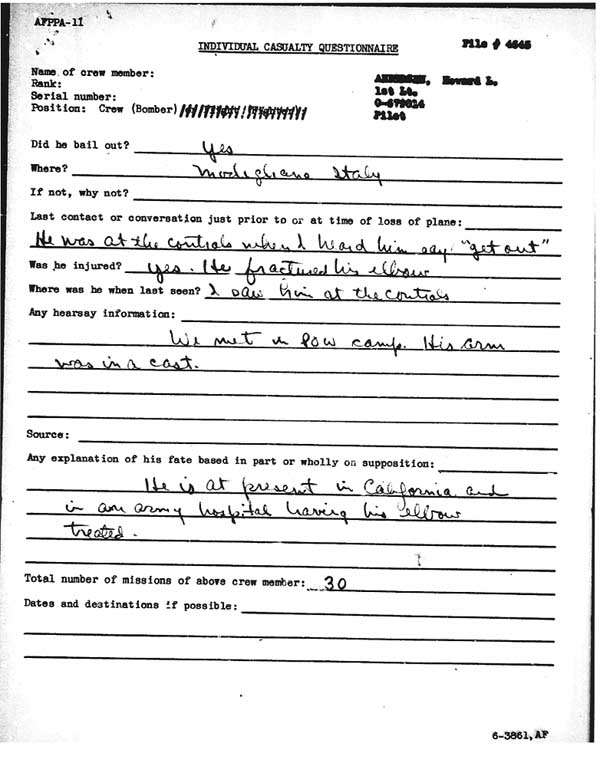 AFPPA-11
INDIVIDUAL CASUALTY QUESTIONNAIRE
File # 4645
Name of crew member: ANDERSON, Howard L.
Rank: 1st Lt.
Serial number:
Position: Crew (Bomber) Pilot
Did he bail out? Yes
Where? Modigliana Italy
If not, why not?
Last contact or conversation just prior to or at time of loss of plane:
He was at the controls when I heard him say "get out"
Was he injured? yes. He fractured his elbow
Where was he when last seen? I saw him at the controls
Any hearsay information:
We met in POW camp. His arm
was in a cast.
Source:
Any explanation of his fate based in part or wholly on supposition:
He is at present in California and
in an army hospital having his elbow
treated.
Total number of missions of above crew member: 30
Dates and destinations if possible:
6-3861,AF